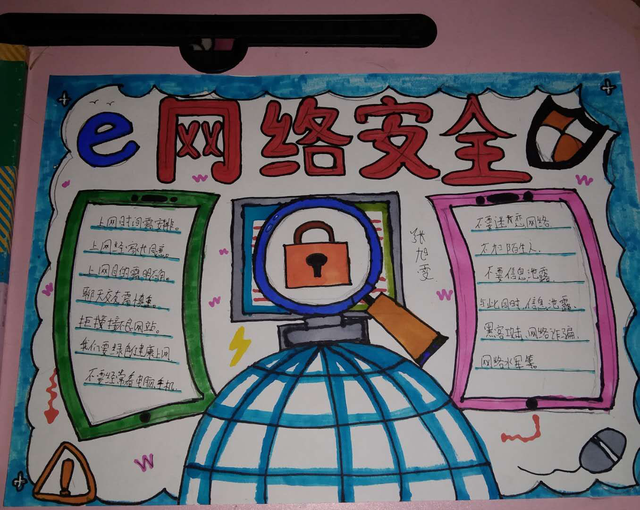 e 网络安全
上网时间要安排。
上网经家长同意。
上网目的需明确。
聊天交友需慎重。
拒绝接触网站。
我们要绿色健康上网
不要经常看电脑手机
张旭雯
不要迷恋网络
不加陌生人.
不要信息泄露
与此同时,信息泄露
黑客攻击、网络诈骗
网络水军等